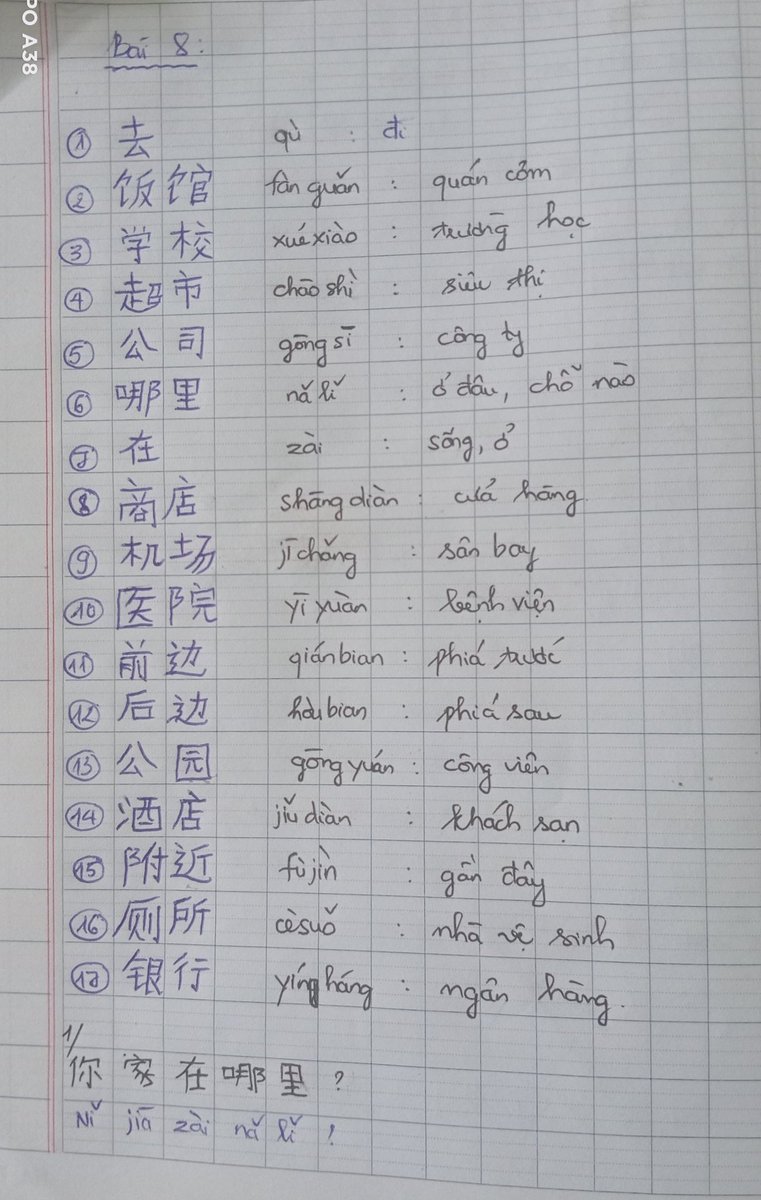 PO A38
Bài 8:
① 去 qù : đi
② 饭馆 fàn guǎn : quán cơm
③ 学校 xuéxiào : trường học
④ 超市 chāo shì : siêu thị
⑤ 公司 gōng sī : công ty
⑥ 哪里 nǎ lǐ : ở đâu, chỗ nào
⑦ 在 zài : sống, ở
⑧ 商店 shāng diàn : cửa hàng
⑨ 机场 jī chǎng : sân bay
⑩ 医院 yī yuàn : bệnh viện
⑪ 前边 qiánbian : phiá trước
⑫ 后边 hòubian : phiá sau
⑬ 公园 gōng yuán : công viên
⑭ 酒店 jiǔ diàn : khách sạn
⑮ 附近 fùjìn : gần đây
⑯ 厕所 cèsuǒ : nhà vệ sinh
⑰ 银行 yín háng : ngân hàng.
1/
你家在哪里?
Nǐ jiā zài nǎ lǐ ?